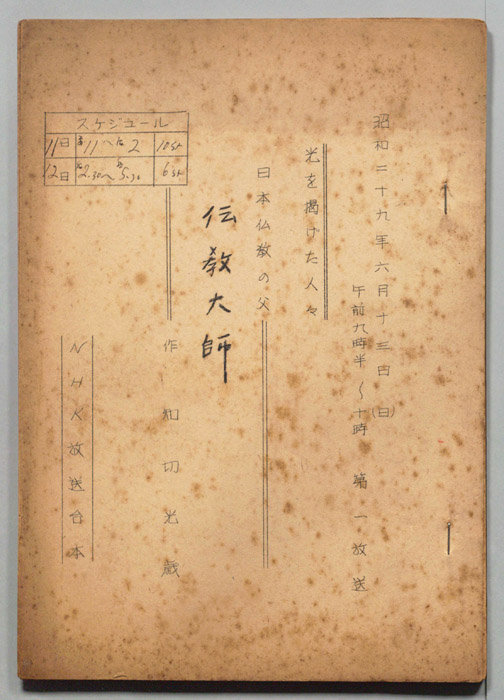 昭和二十九年六月十三日(日)
午前九時半〜十時 第一放送
光を掲げた人々
日本仏教の父
伝教大師
作 知切光歳
NHK放送台本
スケジュール
11日 11〜 2 10st
12日 2.30〜5.30 6st